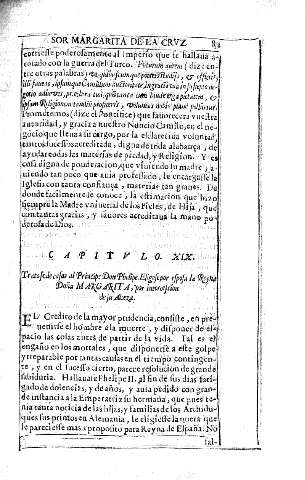 SOR MARGARITA DE LA CRVZ
corriesse poderosamente al Imperio que se hallaua a-
cosado con la guerra del Turco.
tre otras palabras)
Prometemos (dize el Pontifice) que fauorecera vuestra
autoridad, y gracia a nuestro Nuncio Camilo, en el ne-
gocio que lleua a su cargo, por la esclarecida voluntad,
tantos sucessos acreditada, digna de toda alabança, de
ayudar todas las materias de piedad, y Religion. Y es
cosa digna de ponderacion, que viuiendo su madre, a-
uiendo tan poco que auia professado, le encargasse la
Iglesia con tanta confiança, materias tan graues. De
donde facilmente se conoce, la estimacion que hizo
siempre la Madre vniuersal de los Fieles, de Hija, que
con tantas gracias, y fauores acreditaua la mano po-
derosa de Dios.
CAPITVLO. XIX.
Tratase de casar al Principe Don Phelipe. Eligese por esposa la Reyna
Doña MARGARITA, por intercession
de su Alteza.
EL Credito de la mayor prudencia, consiste, en pre-
uenirse el hombre a la muerte, y disponer de espa-
cio las cosas antes de partir de la vida. Tal es el
engaño en los mortales, que disponerse a este golpe
yrreparable por tantas causas en el tiempo contingen-
te, y en el sucesso cierto, parece resolucion de grande
sabiduria. Hallauase Phelipe II. al fin de sus dias fati-
gado de dolencias, y de años, y auia pedido con gran-
de instancia a la Emperatriz su hermana, que pues te-
nia tanta noticia de las hijas, y familias de los Archidu-
ques sus primos en Alemania, le eligiesse la nuera que
le pareciesse mas a proposito para Reyna de España. No
tal-